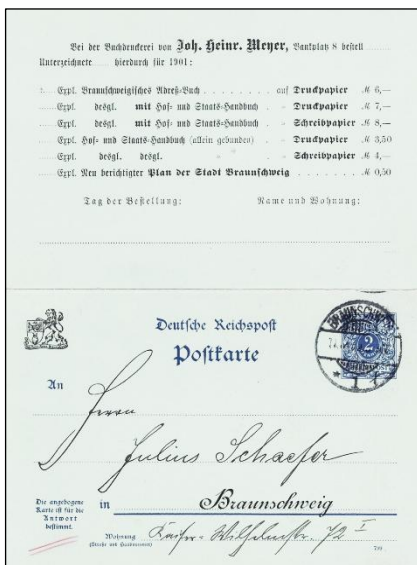 Bei der Buchdruckerei von Joh. Heinr. Meyer, Bankplatz 8 bestell
Unterzeichnete hierdurch für 1901:
Expl. Braunschweigisches Adreß-Buch auf Druckpapier M 6,—
Expl. desgl. mit Hof- und Staats-Handbuch „ Druckpapier M 7,—
Expl. desgl. mit Hof- und Staats-Handbuch „ Schreibpapier M 8,—
Expl. Hof- und Staats-Handbuch (allein gebunden) „ Druckpapier M 3,50
Expl. desgl. desgl. „ Schreibpapier M 4,—
Expl. Neu berichtigter Plan der Stadt Braunschweig M 0,50
Tag der Bestellung: Name und Wohnung:
Deutsche Reichspost
Postkarte
BRAUNSCHWEIG
2
1
An
Herrn
Julius Schaefer
Die angebogene
Karte ist für die
Antwort
bestimmt.
in Braunschweig
Wohnung Kaiser-Wilhelmstr. 72 I
(Straße und Hausnummer)